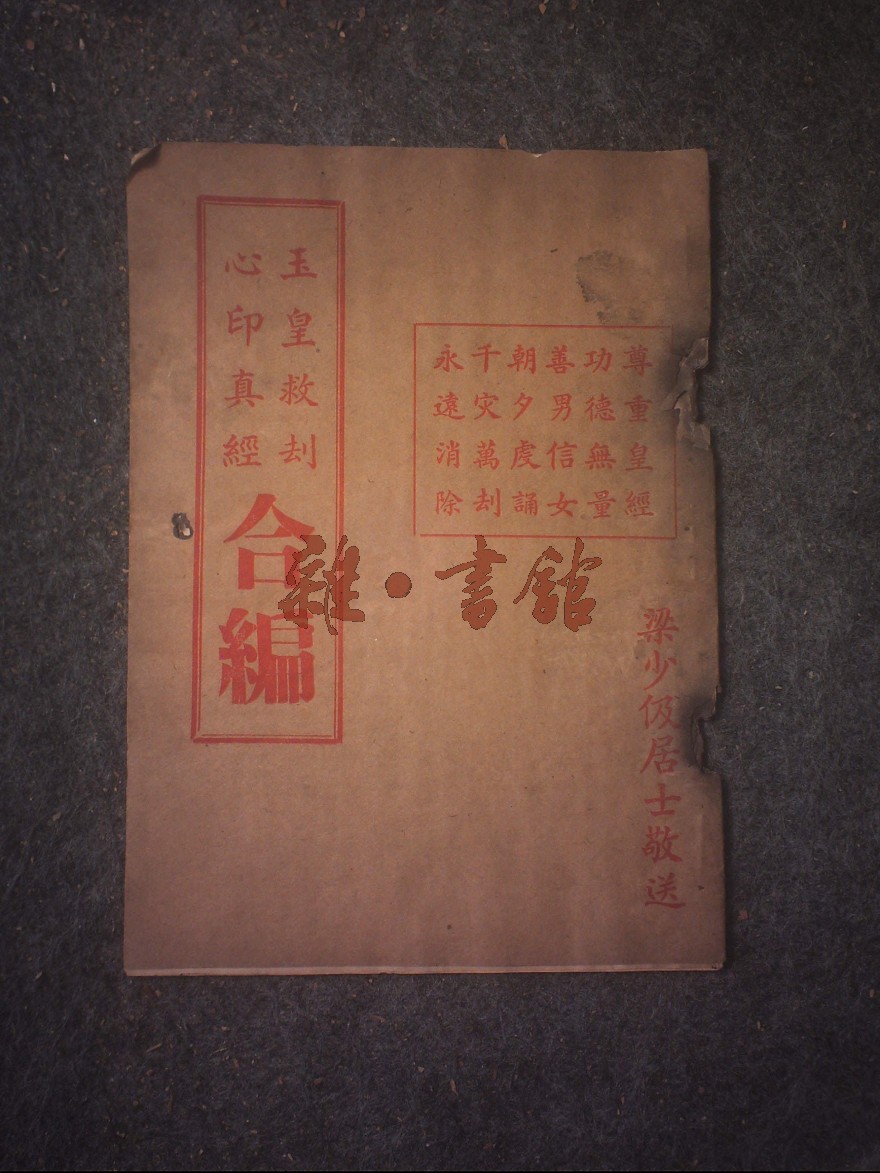 尊重皇經
功德無量
善男信女
朝夕虔誦
千灾萬刦
永遠消除
梁少伋居士敬送
玉皇救刦
心印真經
合編
雜·書館